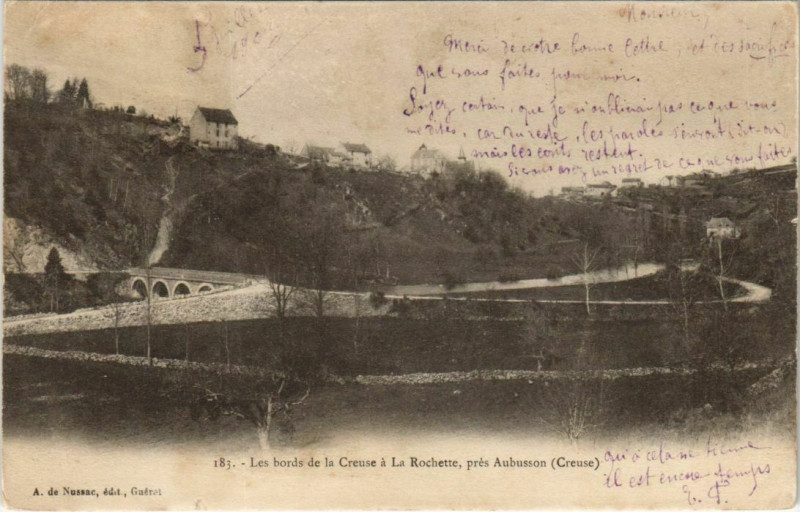 Monsieur,
Merci de votre bonne lettre, et des sacrifices
que vous faites pour moi.
Soyez certain, que je n'oublierai pas ce que vous
me dites, car du reste, les paroles s'envont (dit-on)
mais les écrits restent.
Si vous avez un regret de ce que vous faites
qu'à cela ne tienne
il est encore temps
E. P.
183. - Les bords de la Creuse à La Rochette, près Aubusson (Creuse)
A. de Nussac, édit., Guéret